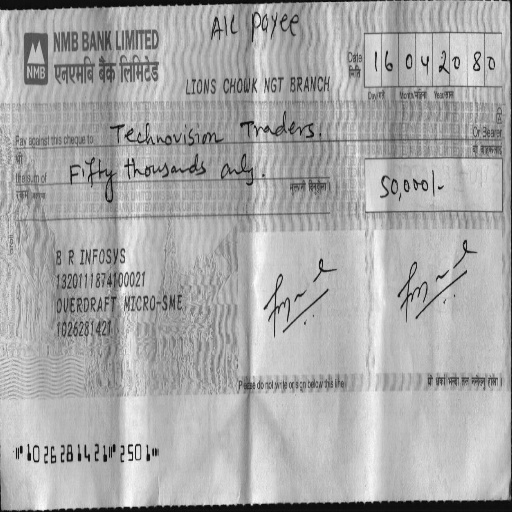 A/C Payee
NMB BANK LIMITED
एनएमबि बैंक लिमिटेड
NMB
LIONS CHOWK NGT BRANCH
Date 16 04 2080
मिति
Pay against this cheque to Technovision Traders.
Or Bearer
श्री
the sum of Fifty thousands only.
50,000/-
B R INFOSYS
1320111874100021
OVERDRAFT MICRO-SME
1026281421
Please do not write or sign below this line
⑈1026281421⑈2501⑈